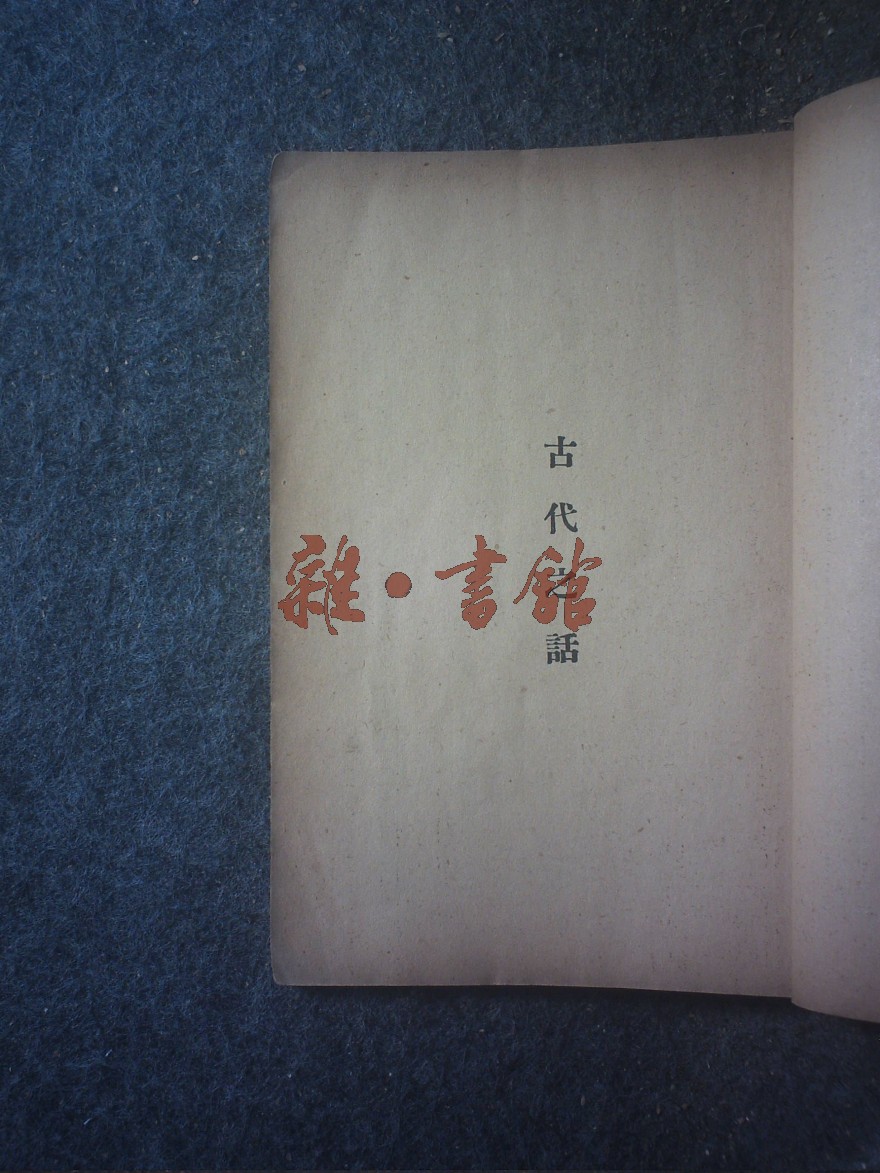 古代之話
雜·書館